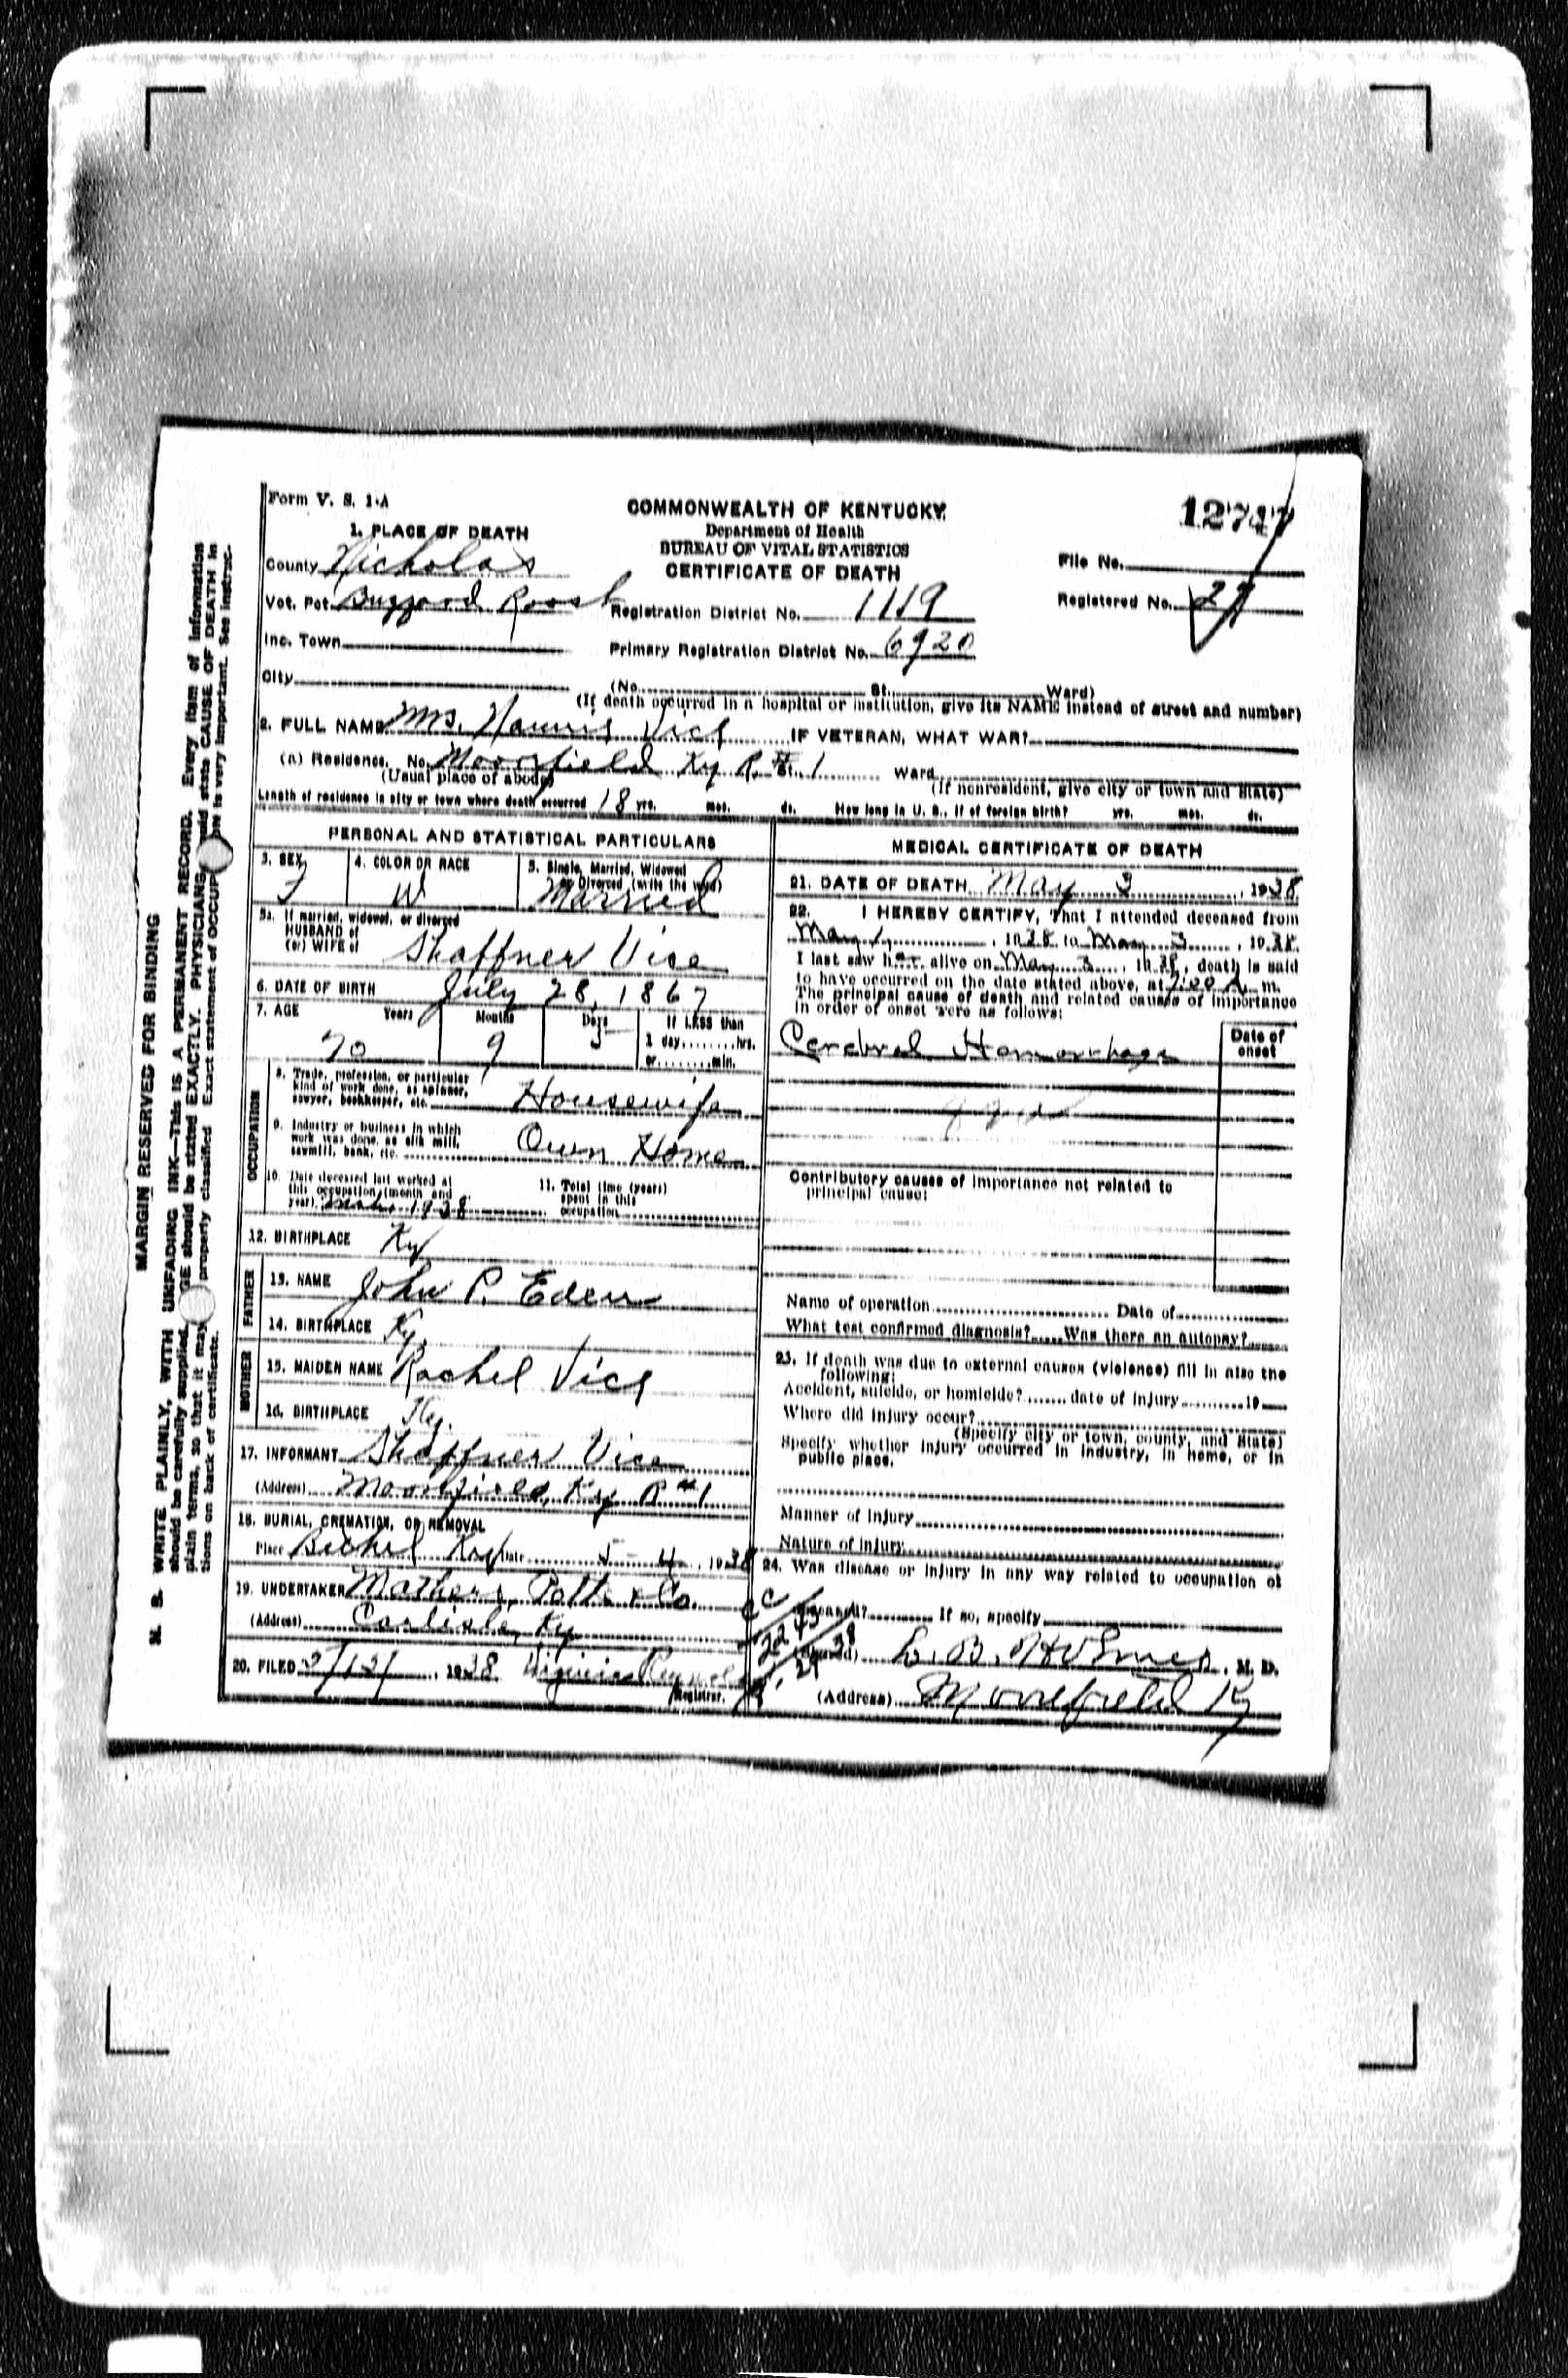 Form V. S. 1-A
COMMONWEALTH OF KENTUCKY
Department of Health
BUREAU OF VITAL STATISTICS
CERTIFICATE OF DEATH
12747
1. PLACE OF DEATH
County Nicholas
File No.
Vot. Pct. Buzzard Roost
Registration District No. 1119
Registered No. 29
Inc. Town
Primary Registration District No. 6920
City (No. St. Ward)
(If death occurred in a hospital or institution, give its NAME instead of street and number)
2. FULL NAME Mrs. Nannie Vice IF VETERAN, WHAT WAR?
(a) Residence. No. Moorefield Ky R. # St. 1 Ward
(Usual place of abode) (If nonresident, give city or town and State)
Length of residence in city or town where death occurred 18 yrs. mos. ds. How long in U. S., if of foreign birth? yrs. mos. ds.
PERSONAL AND STATISTICAL PARTICULARS
3. SEX F
4. COLOR OR RACE W
5. Single, Married, Widowed
or Divorced (write the word)
Married
5a. If married, widowed, or divorced
HUSBAND of
(or) WIFE of Shaffner Vice
6. DATE OF BIRTH July 28, 1867
7. AGE Years Months Days If LESS than
1 day hrs.
or min.
70 9 5
OCCUPATION
8. Trade, profession, or particular
kind of work done, as spinner,
sawyer, bookkeeper, etc. Housewife
9. Industry or business in which
work was done, as silk mill,
sawmill, bank, etc. Own Home
10. Date deceased last worked at
this occupation (month and
year) 1938
11. Total time (years)
spent in this
occupation
12. BIRTHPLACE Ky
FATHER
13. NAME John P. Eden
14. BIRTHPLACE Ky.
MOTHER
15. MAIDEN NAME Rachel Vice
16. BIRTHPLACE Ky.
17. INFORMANT Shaffner Vice
(Address) Moorefield, Ky R #1
18. BURIAL, CREMATION, OR REMOVAL
Place Bethel Ky Date 5-4, 1938
19. UNDERTAKER Mathers, Potts & Co.
(Address) Carlisle, Ky
20. FILED 1938 Virginia
Registrar.
MEDICAL CERTIFICATE OF DEATH
21. DATE OF DEATH May 3, 1938
22. I HEREBY CERTIFY, That I attended deceased from
May 1, 1938 to May 3, 1938
I last saw her alive on May 3, 1938, death is said
to have occurred on the date stated above, at 7:00 A. m.
The principal cause of death and related causes of importance
in order of onset were as follows:
Date of
onset
Cerebral Hemorrhage
Contributory causes of importance not related to
principal cause:
Name of operation Date of
What test confirmed diagnosis? Was there an autopsy?
23. If death was due to external causes (violence) fill in also the
following:
Accident, suicide, or homicide? date of injury 19
Where did injury occur?
(Specify city or town, county, and State)
Specify whether injury occurred in industry, in home, or in
public place.
Manner of injury
Nature of injury
24. Was disease or injury in any way related to occupation of
deceased? If so, specify
(Signed) M. D.
(Address) Moorefield Ky
MARGIN RESERVED FOR BINDING
N. B. WRITE PLAINLY, WITH UNFADING INK—THIS IS A PERMANENT RECORD. Every item of information
should be carefully supplied. AGE should be stated EXACTLY. PHYSICIANS should state CAUSE OF DEATH in
plain terms, so that it may properly classified. Exact statement of OCCUPATION is very important. See instruc-
tions on back of certificate.